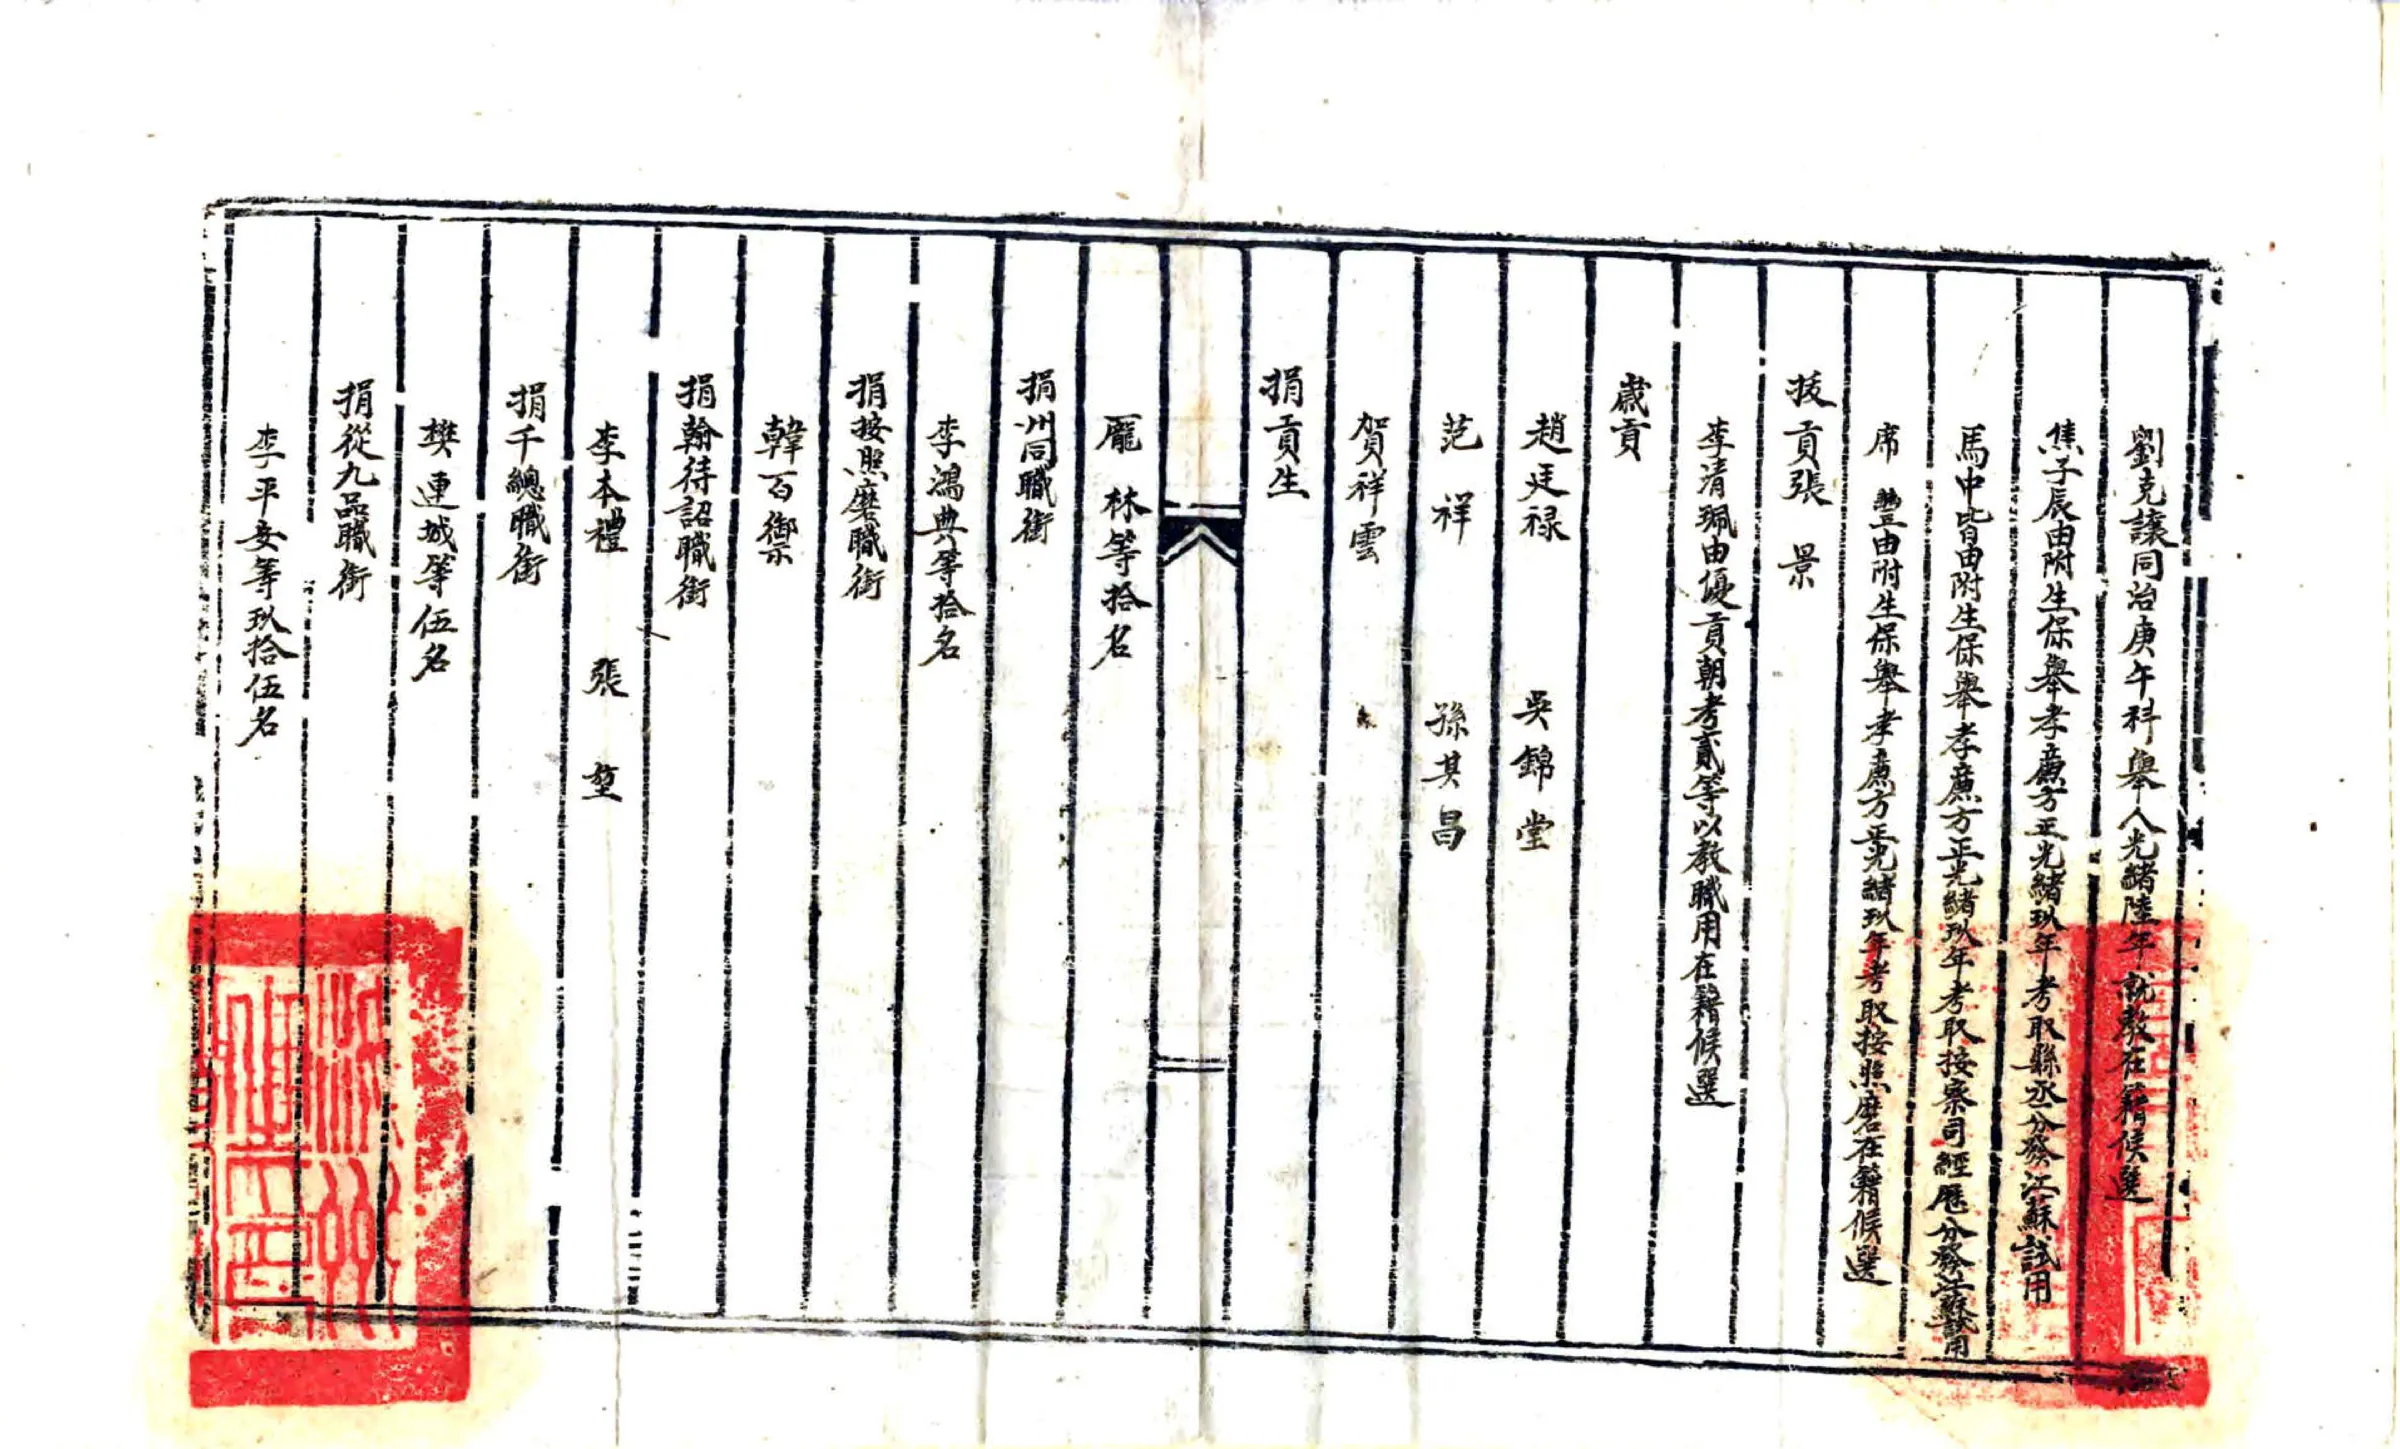 劉克讓同治庚午科舉人光緒陸年就教在籍候選
焦子辰由附生保舉孝廉方正光緒玖年考取縣丞分發江蘇試用
馬中皆由附生保舉孝廉方正光緒玖年考取按察司經歷分發江蘇試用
席豐由附生保舉孝廉方正光緒玖年考取按照磨在籍候選
拔貢張景
李清珮由優貢朝考貳等以教職用在籍候選
歲貢
趙廷禄 吳錦堂
范祥 孫其昌
賀祥雲
捐貢生
龐林等拾名
捐州同職銜
李鴻典等拾名
捐按照磨職銜
韓百禦
捐翰待詔職銜
李本禮 張堃
捐千總職銜
樊連城等伍名
捐從九品職銜
李平安等玖拾伍名